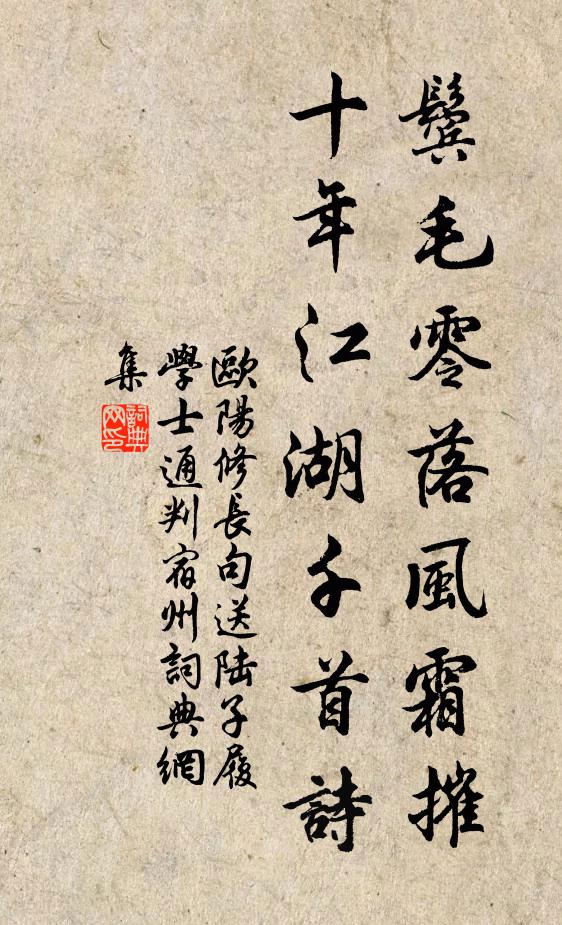 鬢毛零落風霜摧
十年江湖千首詩
歐陽修長句送陸子履
學士通判宿州詞典網
集
詞典
网印